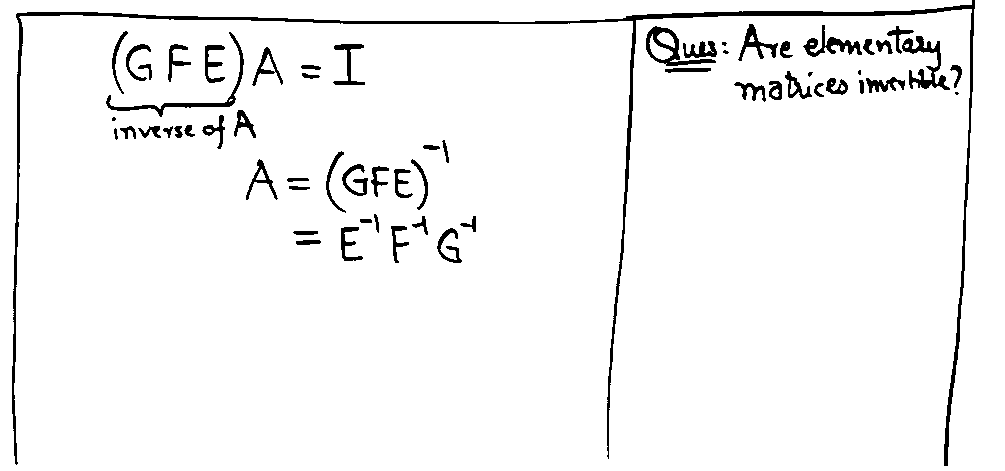 (GFE)A = I
inverse of A
A = (GFE)⁻¹
= E⁻¹F⁻¹G⁻¹
Ques: Are elementary
matrices invertible?